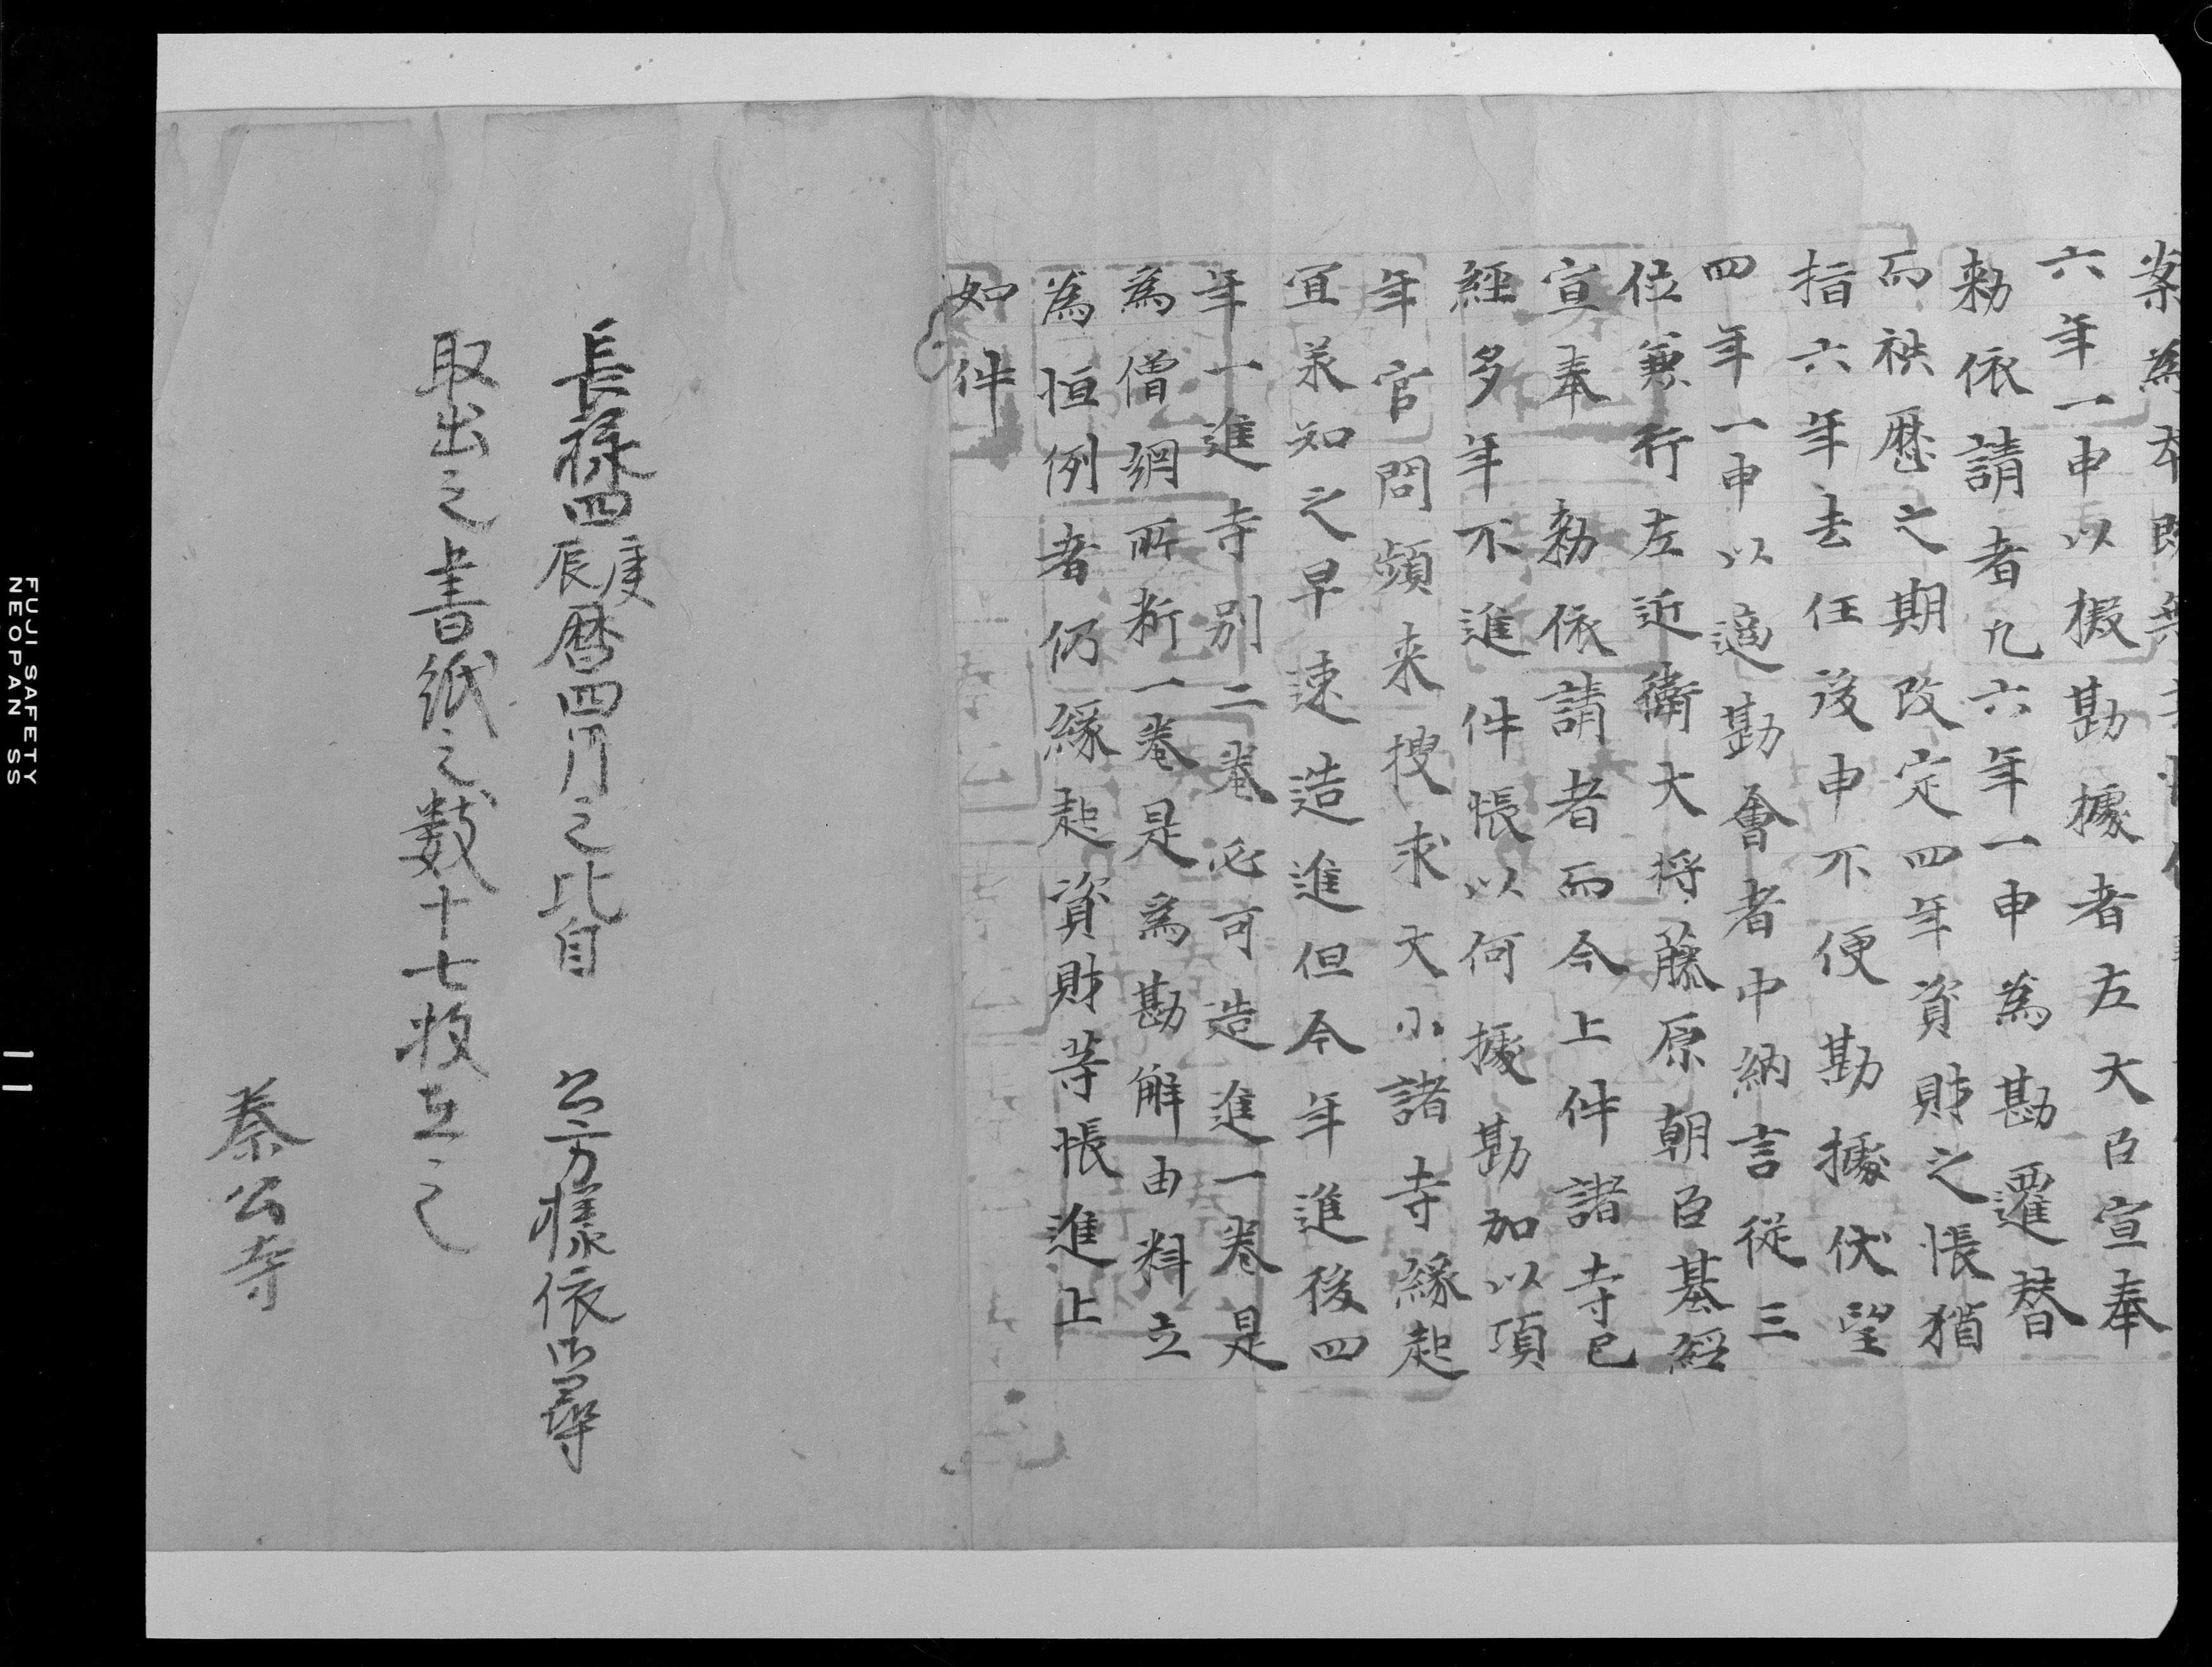 案為本既無
六年一申以擬勘據者左大臣宣奉
勅依請者九六年一申為勘遷替
而秩歷之期改定四年資財之帳猶
指六年去任後申不便勘據伏望
四年一申以適勘會者中納言從三
位兼行左近衛大将藤原朝臣基経
宣奉　勅依請者而今上件諸寺已
經多年不進件帳以何據勘加以項
年官問頻来搜求大小諸寺緣起
宜承知之早速造進但今年進後四
年一進寺別二卷必可造進一卷是
為僧綱所新一卷是為勘解由料立
為恒例者仍緣起資財等帳進上
如件
長禄四庚辰暦四月之比自　公方様依御尋
取出之書紙之数十七枚在之
秦公寺
FUJI SAFETY
NEOPAN SS
11